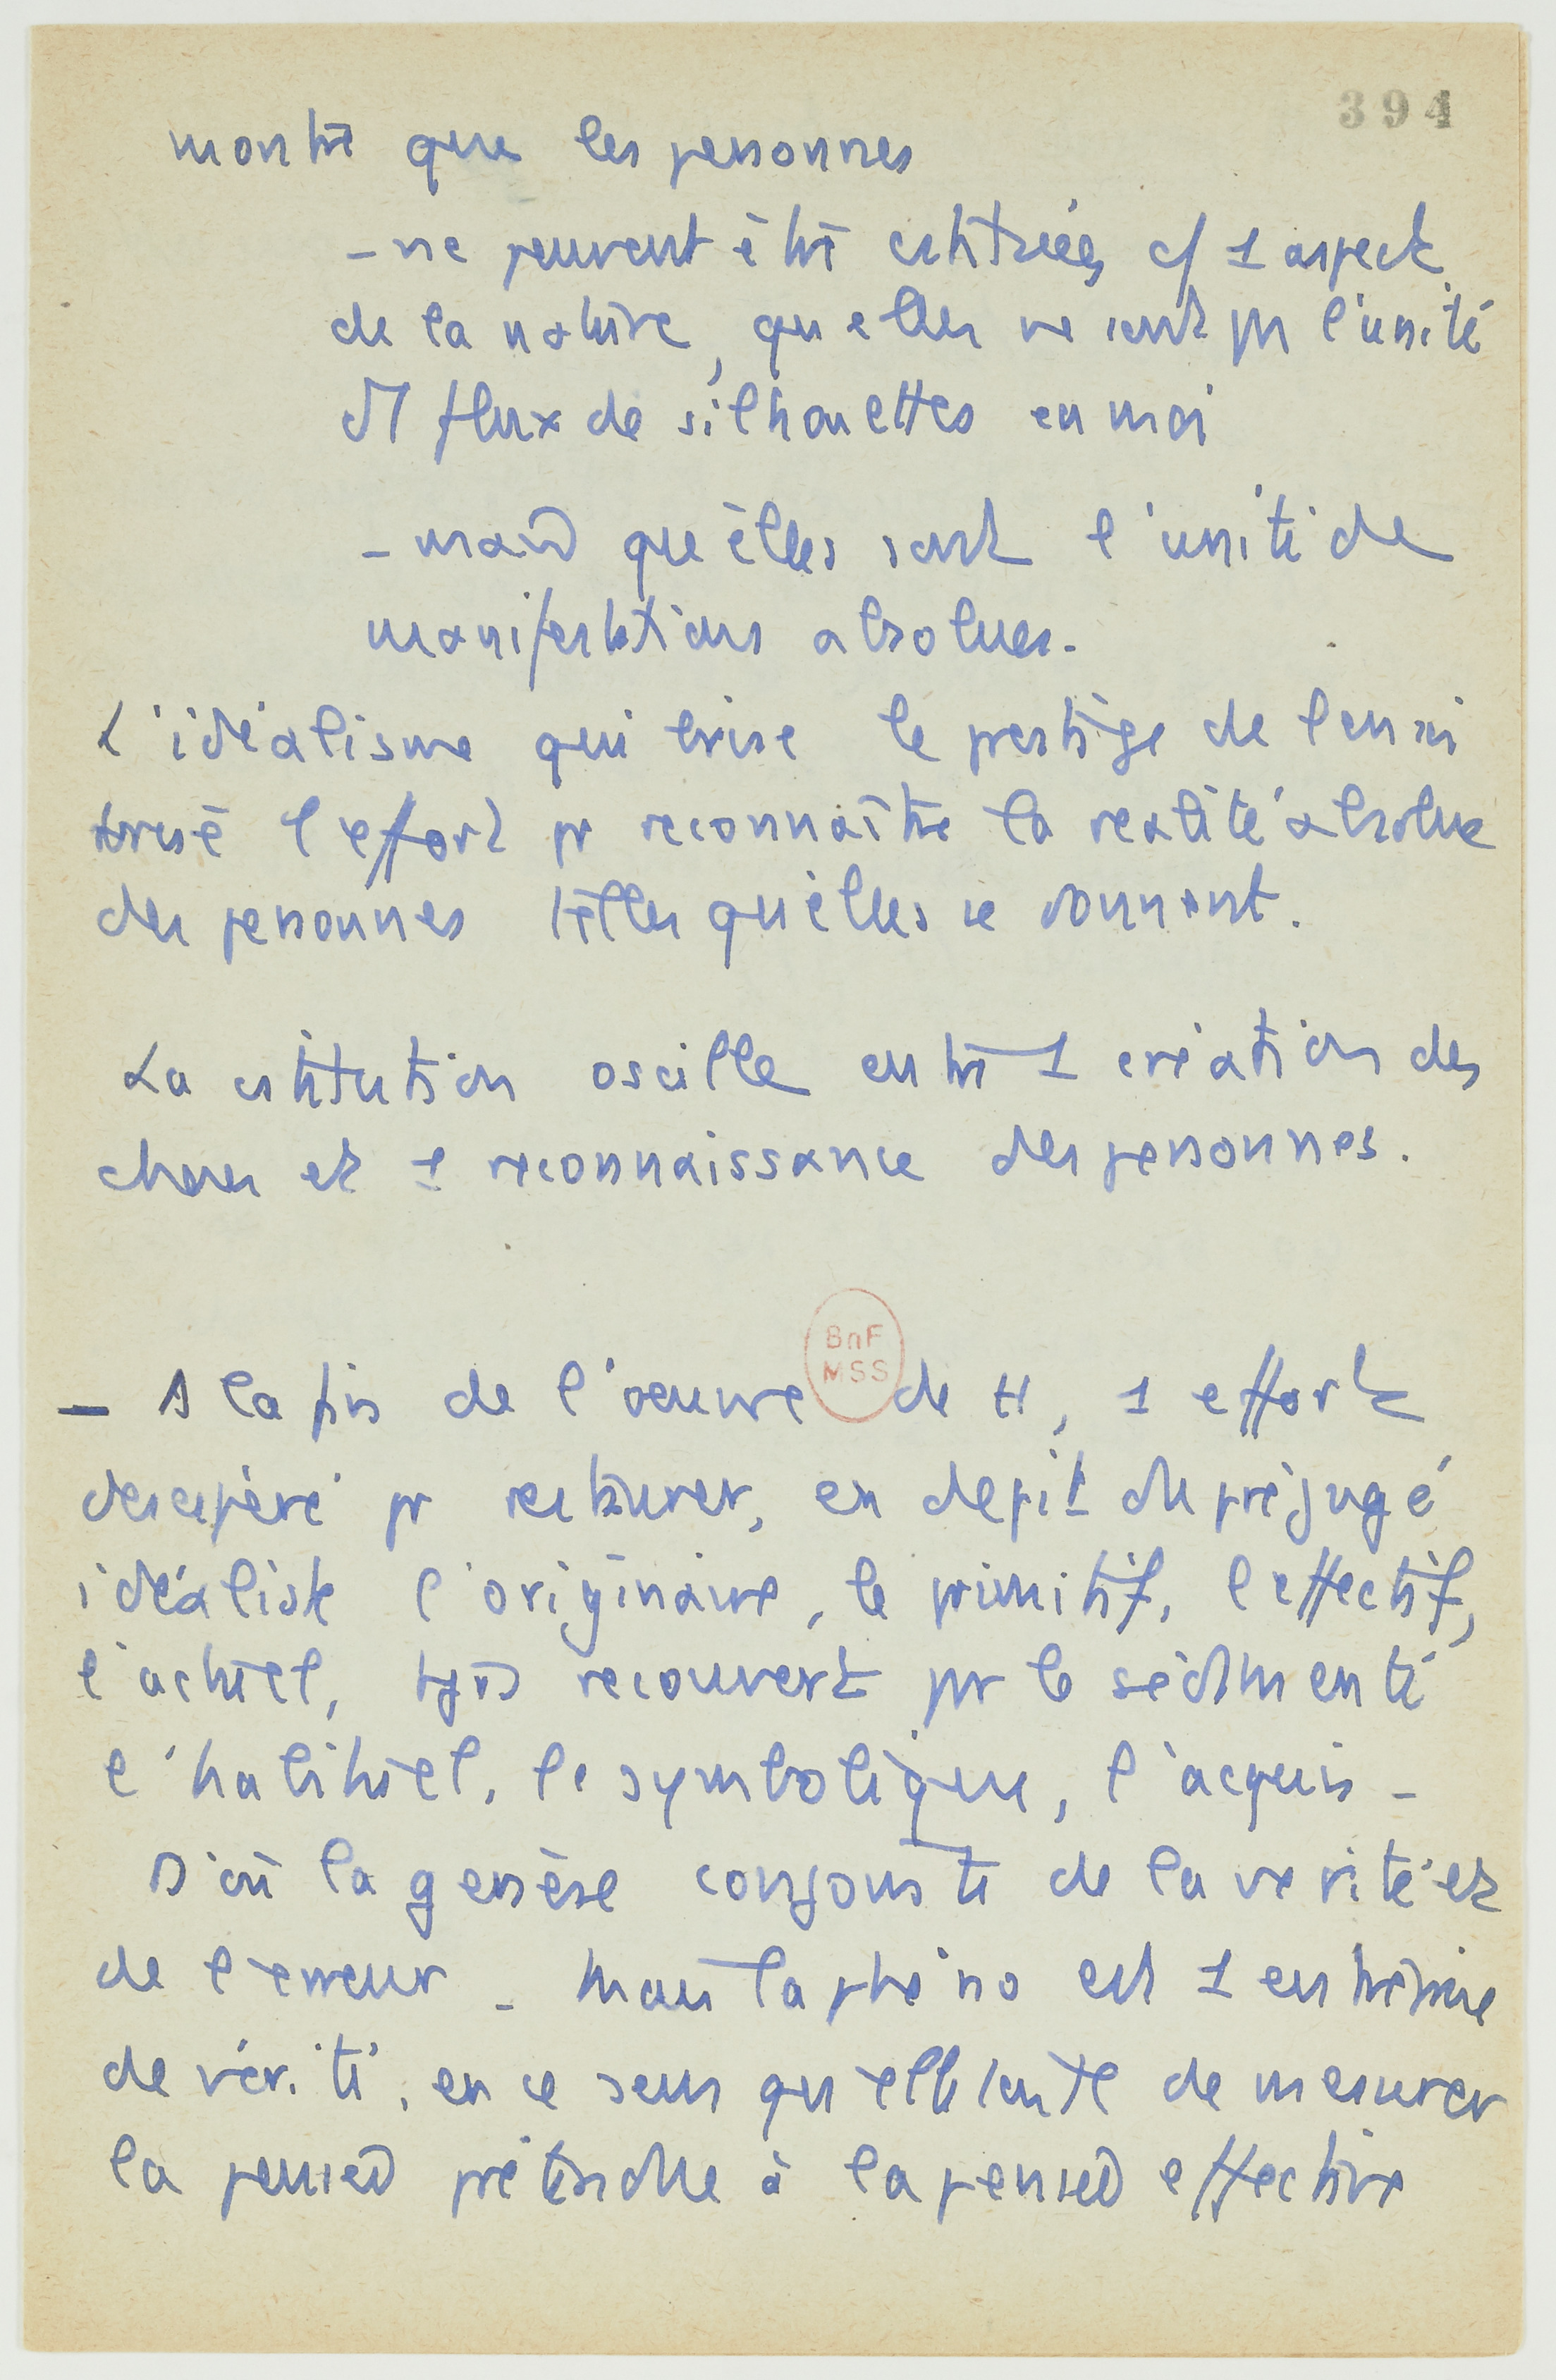 394
montre que les personnes
- ne peuvent être cstituées c/ 1 aspect
de la nature, qu'elles ne sont pas l'unité
d'1 flux de silhouettes en moi
- mais qu'elles sont l'unité de
manifestations absolues.
L'idéalisme qui brise le prestige de l'en soi
brise l'effort pr reconnaître la réalité absolue
des personnes telles qu'elles se donnent.
La cstitution oscille entre 1 création des
choses et 1 reconnaissance des personnes.
BnF
MSS
- A la fin de l'oeuvre de H, 1 effort
désespéré pr restaurer, en dépit du préjugé
idéaliste l'originaire, le primitif, l'effectif,
l'actuel, tjrs recouvert par le sédimenté
l'habituel, le symbolique, l'acquis -
D'où la genèse conjointe de la vérité et
de l'erreur - Mais la phéno est 1 entreprise
de vérité, en ce sens qu'elle tente de mesurer
la pensée prétendue à la pensée effective